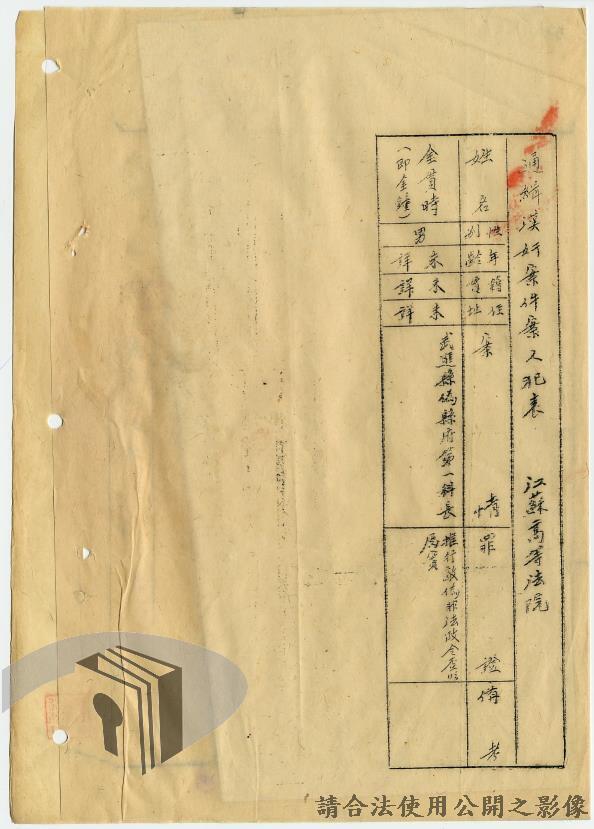 通緝漢奸案件案人犯表 江蘇高等法院
姓名
性別
年齡
籍貫
住址
案情
罪證
備考
金貫時
(即金鐘)
男
未詳
未詳
未詳
武進縣偽縣府第一科長
推行敵偽非法政令
屬實
請合法使用公開之影像